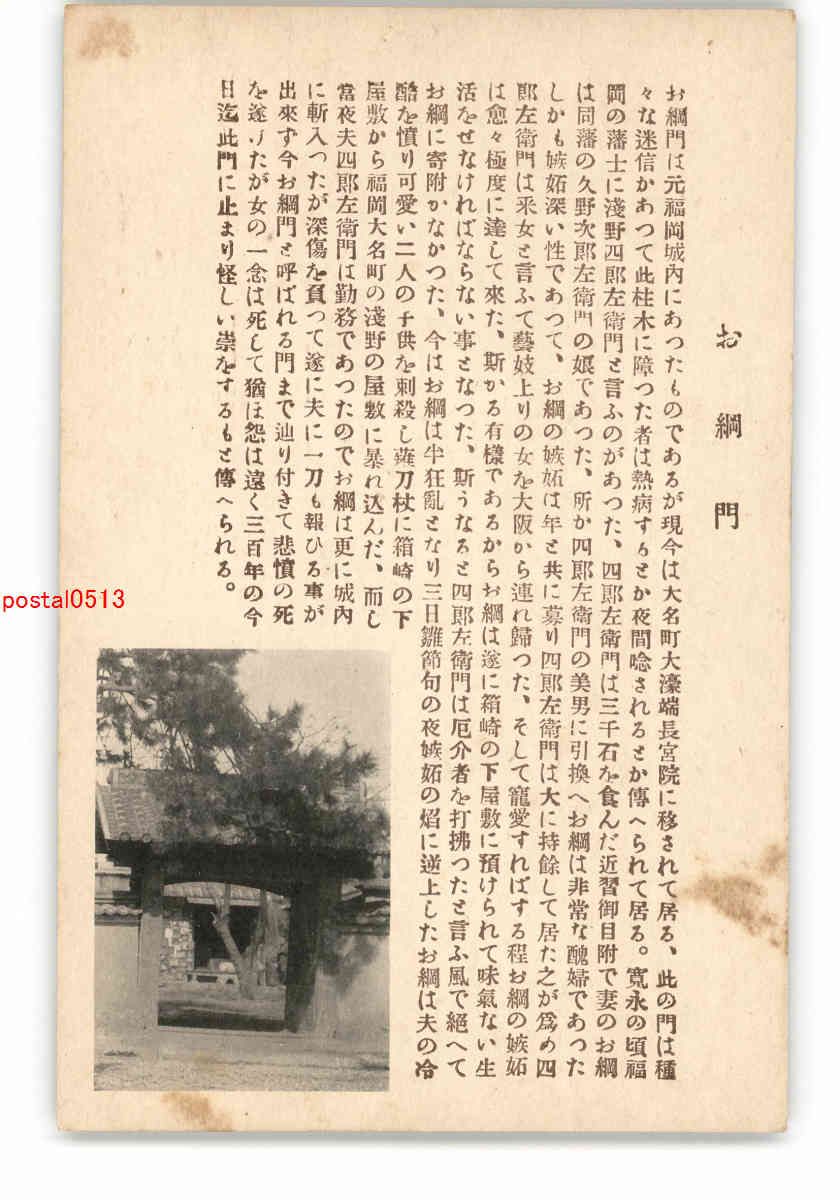 お綱門
お綱門は元福岡城內にあつたものであるが現今は大名町大濠端長宮院に移されて居る、此の門は種
々な迷信かあつて此柱木に障つた者は熱病するとか夜間唸されるとか傳へられて居る。寬永の頃福
岡の藩士に淺野四郞左衛門と言ふのがあつた、四郞左衛門は三千石を食んだ近習御目附で妻のお綱
は同藩の久野次郞左衛門の娘であつた、所か四郞左衛門の美男に引換へお綱は非常な醜婦であつた
しかも嫉妬深い性であつて、お綱の嫉妬は年と共に募り四郞左衛門は大に持餘して居た之が爲め四
郞左衛門は采女と言ふて藝妓上りの女を大阪から連れ歸つた、そして寵愛すればする程お綱の嫉妬
は愈々極度に達して來た、斯かる有樣であるからお綱は遂に箱崎の下屋敷に預けられて味氣ない生
活をせなければならない事となつた、斯うなると四郞左衛門は厄介者を打拂つたと言ふ風で絕へて
お綱に寄附かなかつた、今はお綱は半狂亂となり三日雛節句の夜嫉妬の焰に逆上したお綱は夫の冷
酷を憤り可愛い二人の子供を刺殺し薙刀杖に箱崎の下
屋敷から福岡大名町の淺野の屋敷に暴れ込んだ、而し
當夜夫四郞左衛門は勤務であつたのでお綱は更に城內
に斬入つたが深傷を負つて遂に夫に一刀も報ひる事が
出來ず今お綱門と呼ばれる門まで辿り付きて悲憤の死
を遂げたが女の一念は死して猶ほ怨は遠く三百年の今
日迄此門に止まり怪しい祟をするもと傳へられる。
postal0513